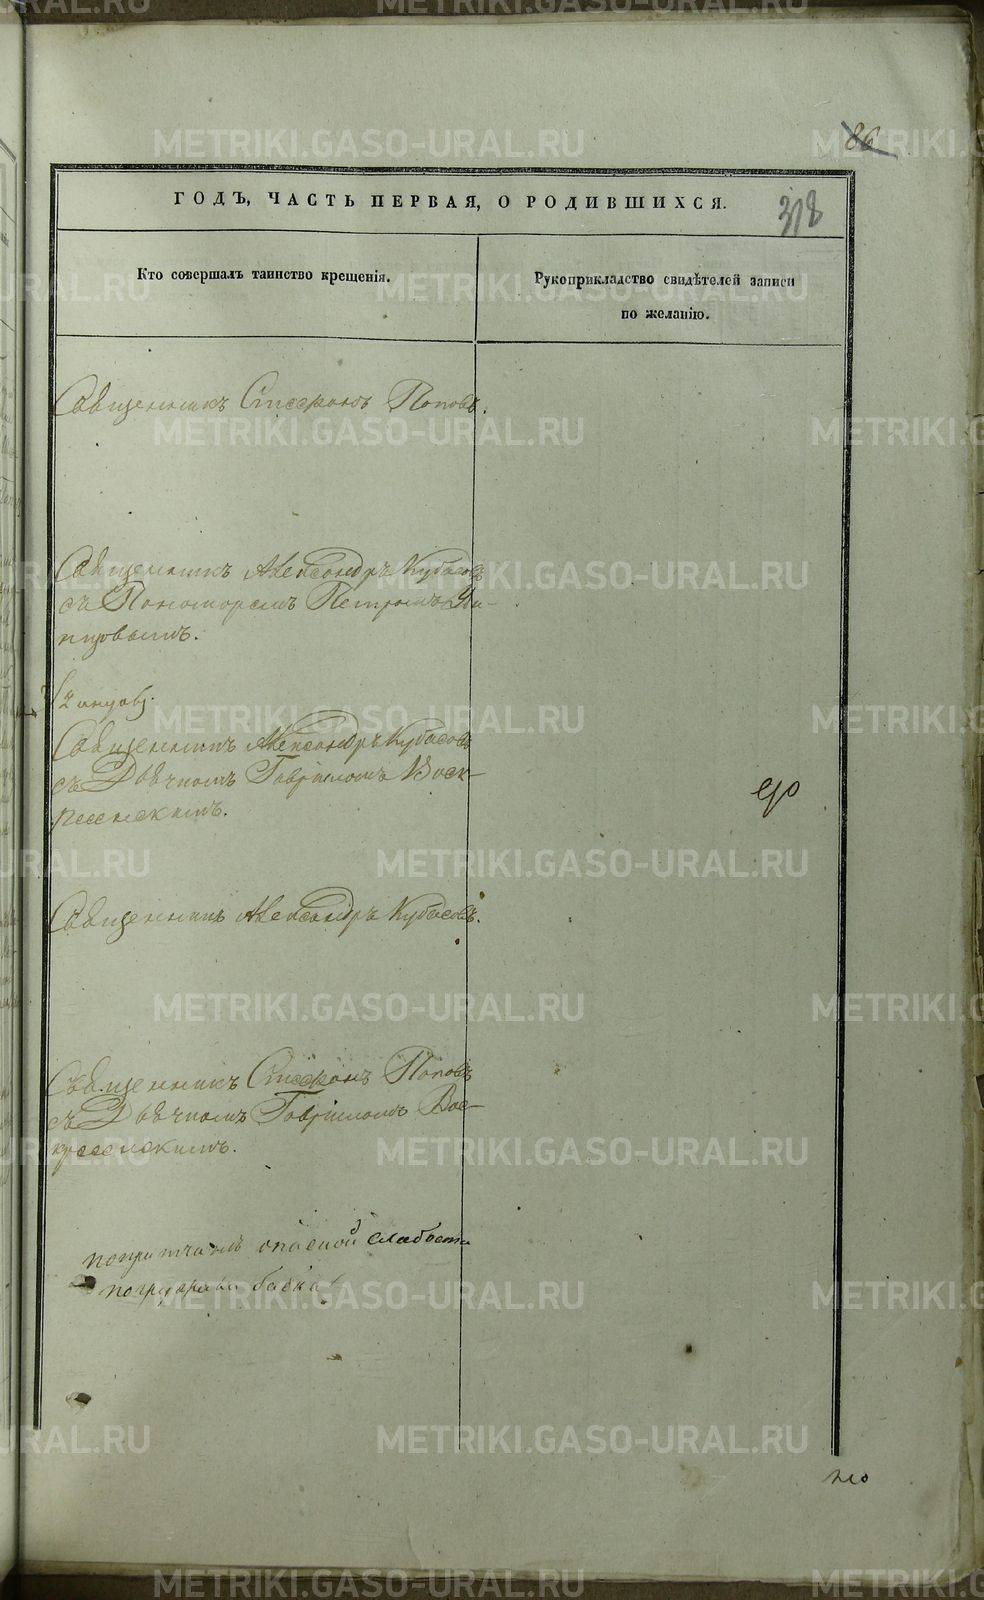 METRIKI.GASO-URAL.RU
86
ГОДЪ, ЧАСТЬ ПЕРВАЯ, О РОДИВШИХСЯ.
318
Кто совершалъ таинство крещенія.
Рукоприкладство свидѣтелей записи
по желанію.
Священникъ Стефанъ Поповъ.
Священникъ Александръ Кубасовъ
съ Пономаремъ Петромъ
Священникъ Александръ Кубасовъ
съ Дьячкомъ Гавріиломъ Воск-
ресенскимъ.
Священникъ Александръ Кубасовъ.
Священникъ Стефанъ Поповъ
съ Дьячкомъ Гавріиломъ Вос-
кресенскимъ.
опасной слабости
погружала бабка